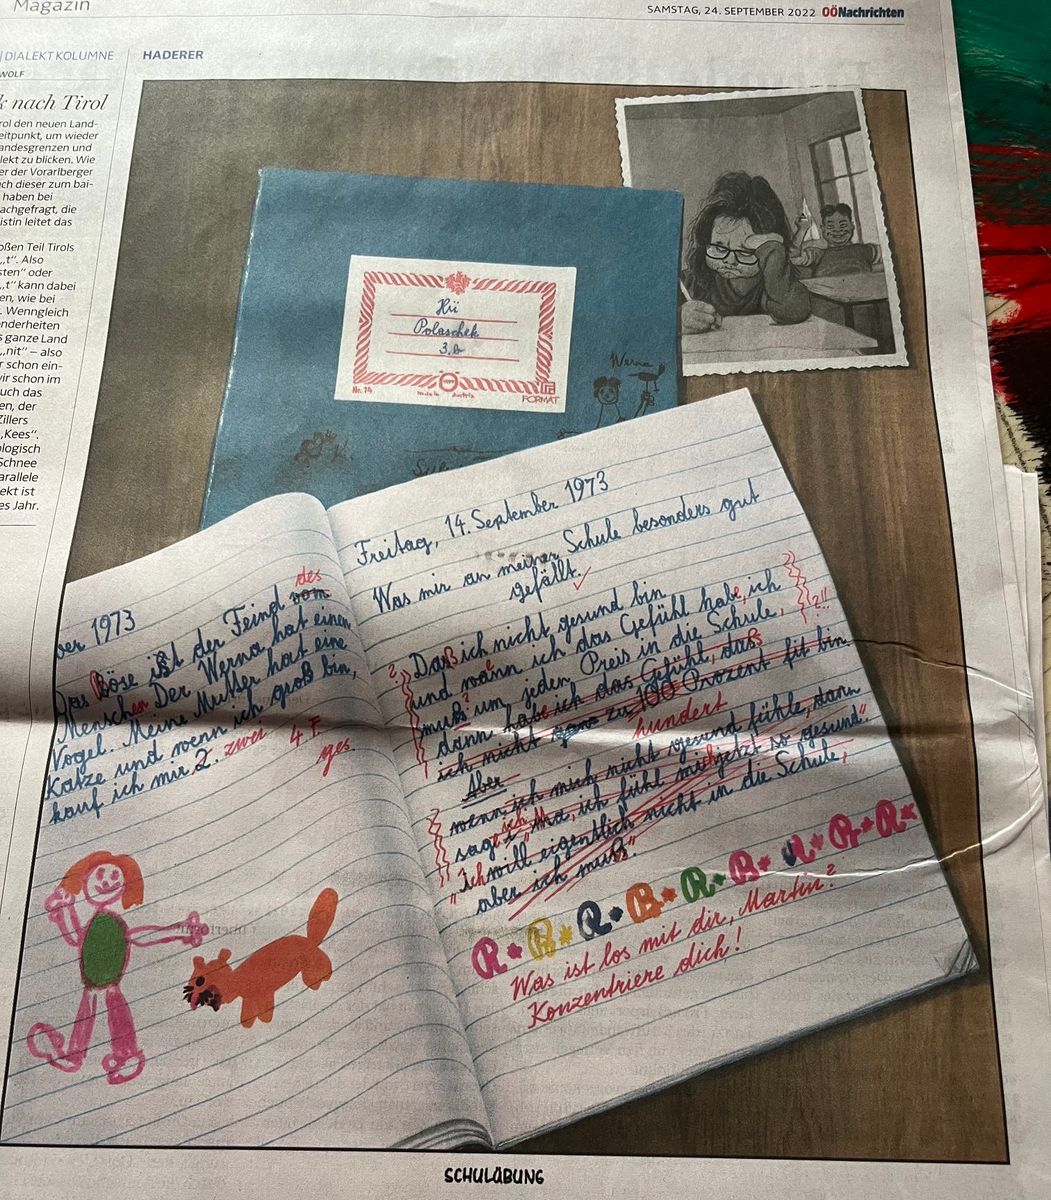 Magazin
SAMSTAG, 24. SEPTEMBER 2022 OÖNachrichten
DIALEKTKOLUMNE
HADERER
WOLF
k nach Tirol
rol den neuen Land-
eitpunkt, um wieder
andesgrenzen und
lekt zu blicken. Wie
er der Vorarlberger
ch dieser zum bai-
haben bei
achgefragt, die
istin leitet das
oßen Teil Tirols
„t“. Also
sten“ oder
„t“ kann dabei
en, wie bei
. Wenngleich
onderheiten
s ganze Land
„nit“ – also
r schon ein-
wir schon im
uch das
en, der
Zillers
„Kees“.
ologisch
Schnee
arallele
ekt ist
es Jahr.
Hü
Polaschek
3.b
Nr. 14
Made in Austria
FORMAT
Werna
ber 1973
des
Das Böse ist der Feind vom
Menschen Der Werna hat einen
Vogel. Meine Mutter hat eine
Katze und wenn ich groß bin,
kauf ich mir 2. zwei
4 F
ges.
Freitag, 14. September 1973
Was mir an meiner Schule besonders gut
gefällt.
Daß ich nicht gesund bin
und wann ich das Gefühl habe, ich
muß um jeden Preis in die Schule,
dann habe ich das Gefühl, daß
ich nicht ganz zu 100 Prozent fit bin.
hundert
Aber
wenn ich mich nicht gesund fühle, dann
sage ich „Na, ich fühl mich jetzt so gesund“.
„Ich will eigentlich nicht in die Schule,
aber ich muß“
R * R * R * R * R * R * R * R * R *
Was ist los mit dir, Martin?
Konzentriere dich!
SCHULÜBUNG